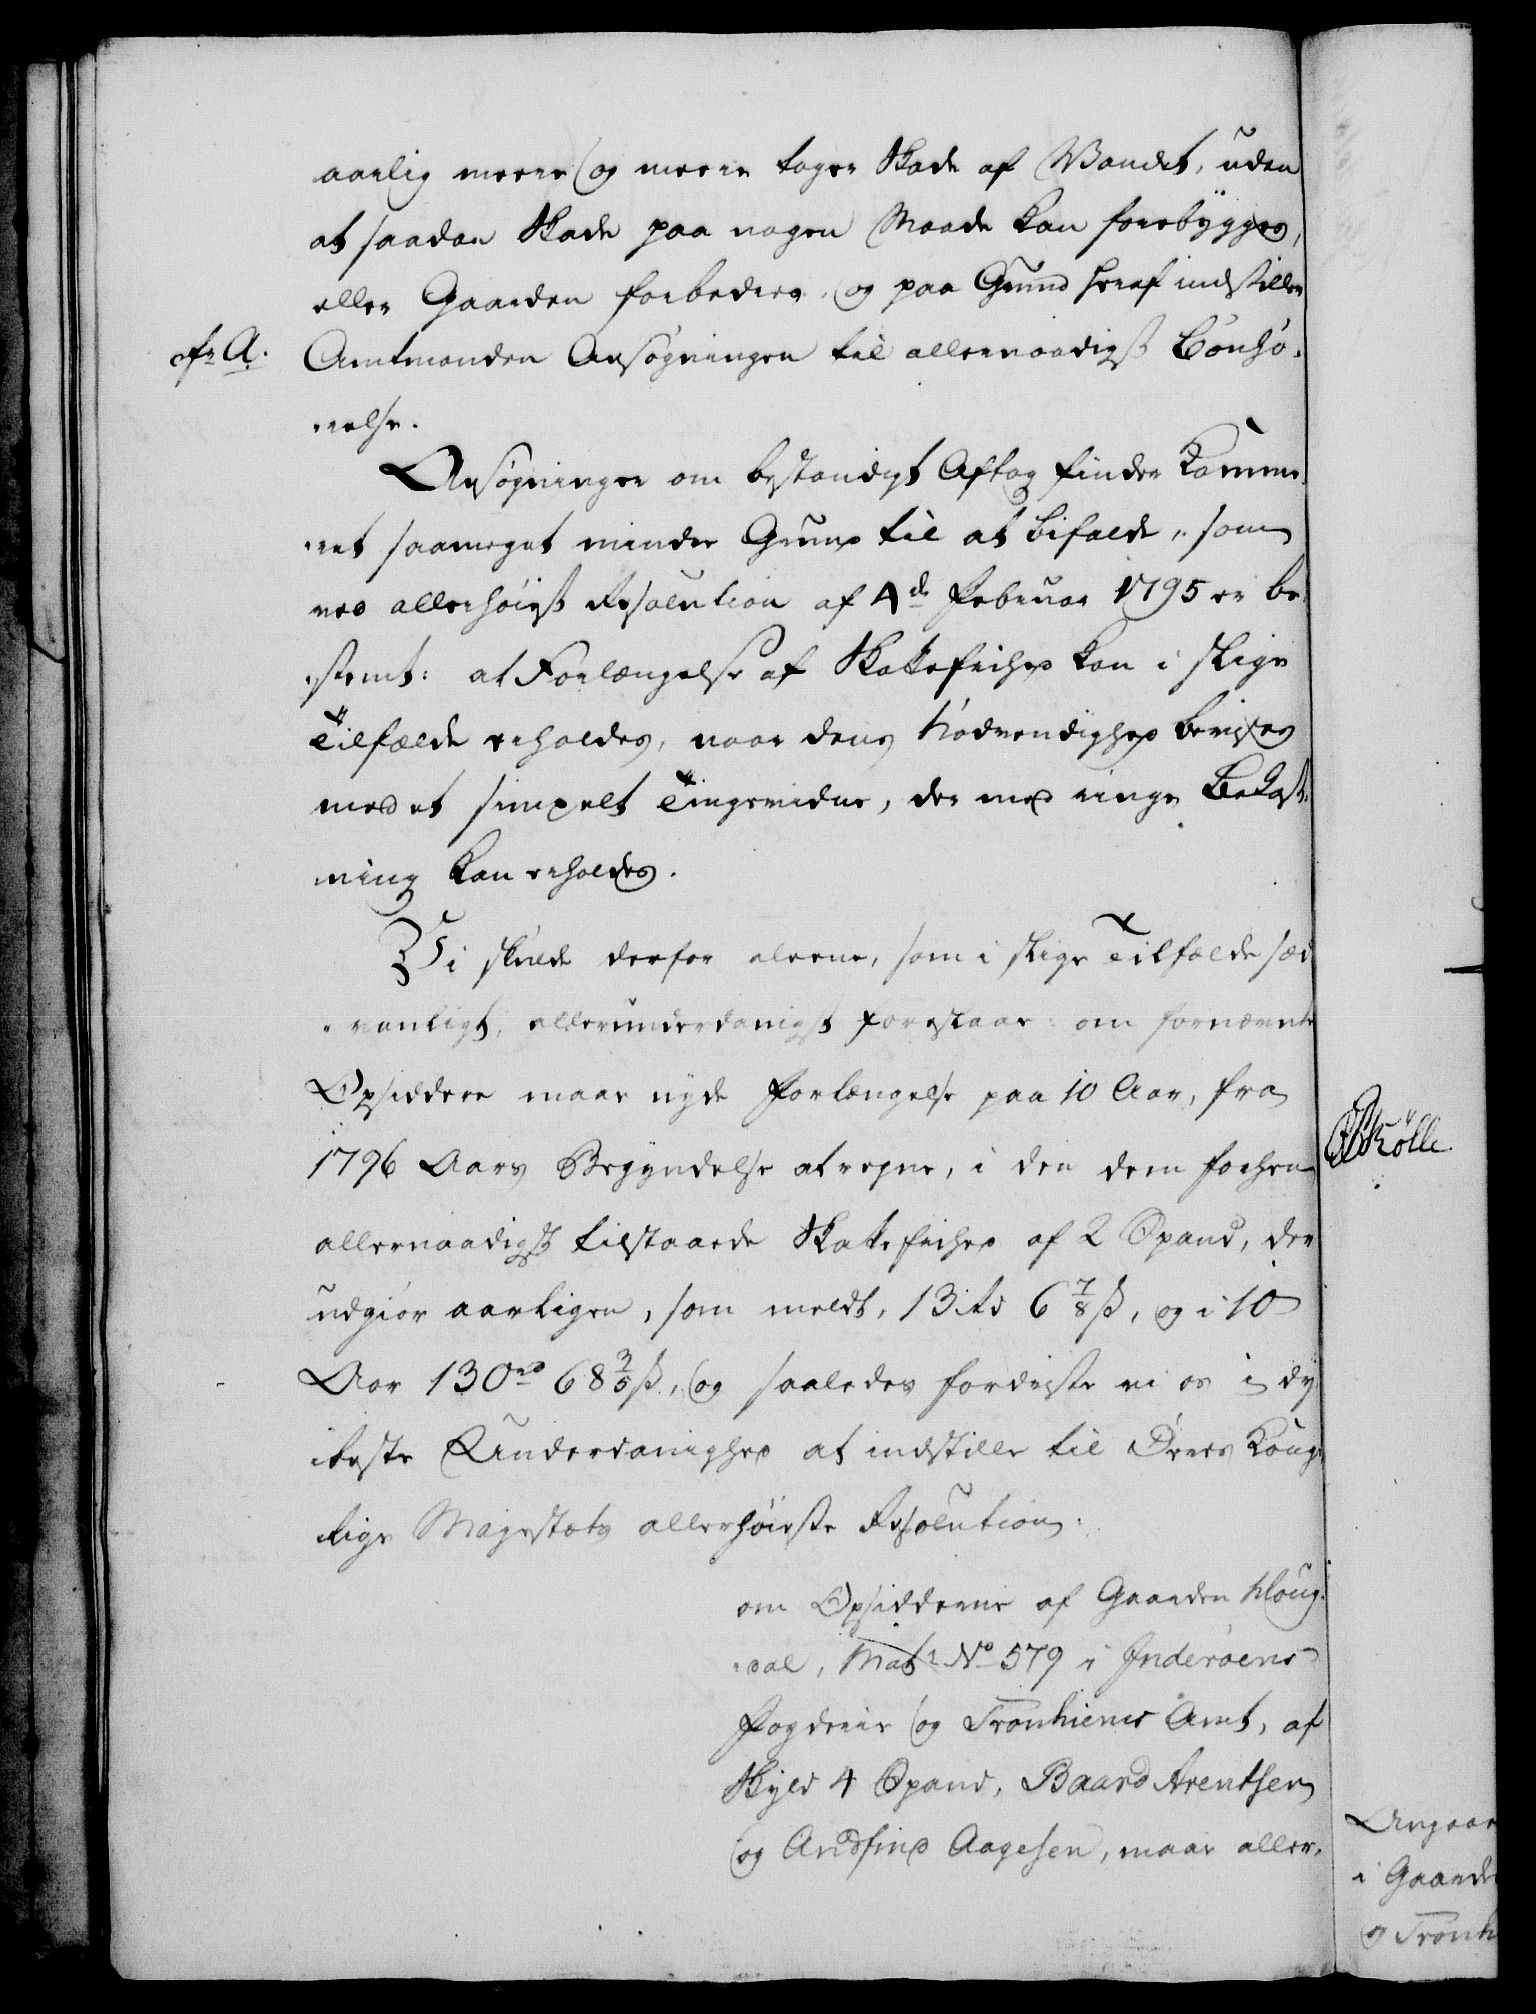 aarlig meere og meere tager Skade af Vandet, uden
at saadan Skade paa nogen Maade kan forebygges,
eller Gaarden forbedres, og paa Grund heraf indstiller
cfr A. Amtmanden Ansøgningen til allernaadigst Bønhø-
relse.
Ansøgningen om bestandigt Aftag finder Kamme-
ret saameget mindre Grund til at bifalde, som
ved allerhøiest Resolution af 4de Februar 1795 er be-
stemt: at Forlængelse af Skattefrihed kan i slige
Tilfælde erholdes, naar dens Nødvendighed bevises
med et simpelt Tingsvidne, der med ringe Bekost-
ning kan erholdes.
Vi skulde derfor alene, som i slige Tilfælde sæd-
vanligt, allerunderdanigst foreslaae: om fornævnte
Opsiddere maae nyde Forlængelse paa 10 Aar, fra
1796 Aars Begyndelse at regne, i den dem forhen
allernaadigst tilstaaede Skattefrihed af 2 Spand, der
udgiør aarligen, som meldt, 13 rd 6 7/8 ß, og i 10
Aar 130 rd 68 3/5 ß, og saaledes fordriste vi os i dy-
beste Underdanighed at indstille til Deres Konge-
lige Majestæts allerhøieste Resolution:
om Opsidderne af Gaarden Houg-
dal, Matr. No 579 i Inderøens
Fogderie og Tronhiems Amt, af
Skyld 4 Spand, Baard Arentsen
og Andfind Aagesen, maae aller-
Angaae
i Gaarde
og Tronh